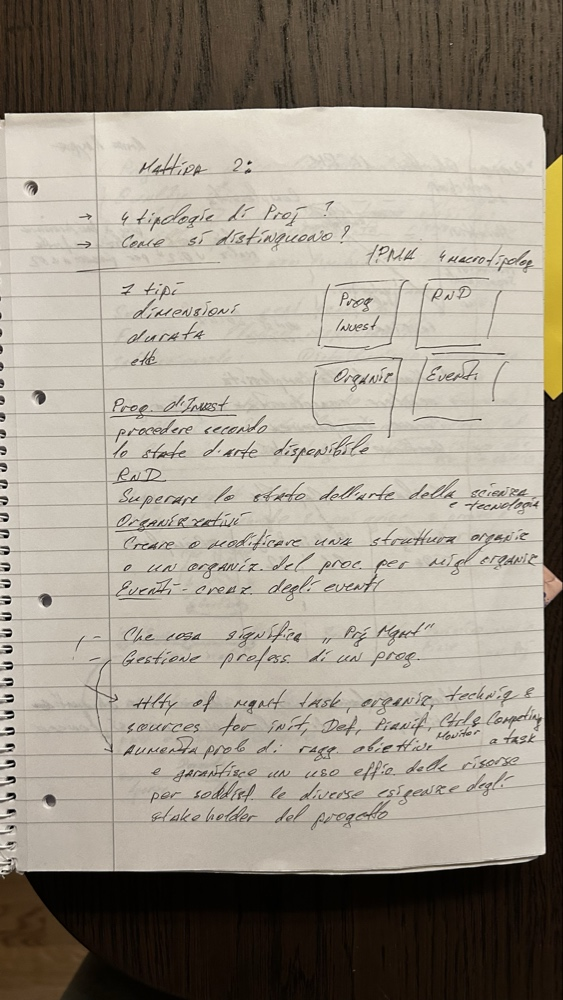 MATTINA 2:
→ 4 tipologie di Proj ?
→ Come si distinguono?
IPMA 4 macrotipolog
7 tipi
dimensioni
durata
etc
Prog Invest
RnD
Organiz
Eventi
Prog. d'Invest
procedere secondo
lo state d'arte disponibile
RnD
Superare lo stato dell'arte della scienza
e tecnologia
Organizzativi
Creare o modificare una struttura organiz
o un organiz. del proc per migl organiz
Eventi - creaz. degli eventi
! - Che cosa significa „Prj Mgmt"
- Gestione profess. di un prog.
of mgmt task, organiz, techniq e
sources for init, Def, Pianif, Ctrl & Competing
Monitor a task
Aumenta prob di ragg. obiettivi
e garantisce un uso effic delle risorse
per soddisf. le diverse esigenze degli
stakeholder del progetto